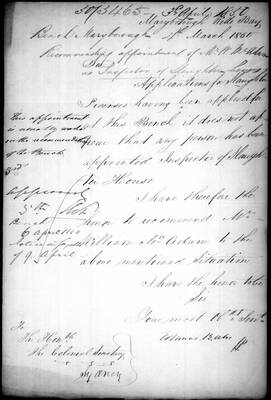 Maryborough Wide Bay
Bench Maryborough March 1860
Recommending appointment of Mr. W. McAdam
as Inspector of Slaughter
Sir
Applications for Slaughter
Licenses having been applied for
at this Bench, it does not ap
pear that any person has been
appointed Inspector of Slaugh
ter House
I have therefore the
honor to recommend Mr.
William McAdam to the
above mentioned situation
I have the honor to be
Sir
Your most Obt Servt
This appointment
is usually made
on the recommendation
of the Bench
approved
5th
Bench
6 April 1860
of 9 April
To
The Honble
The Colonial Secretary
Sydney